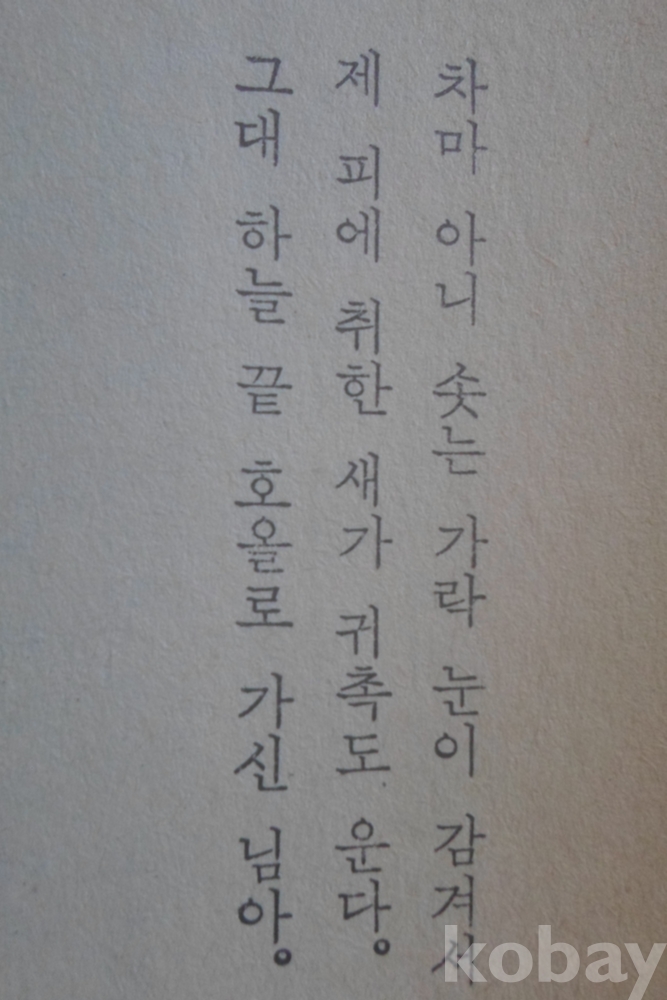 차마 아니 솟는 가락 눈이 감겨서
제 피에 취한 새가 귀촉도 운다。
그대 하늘 끝 호올로 가신 님아。
kobay